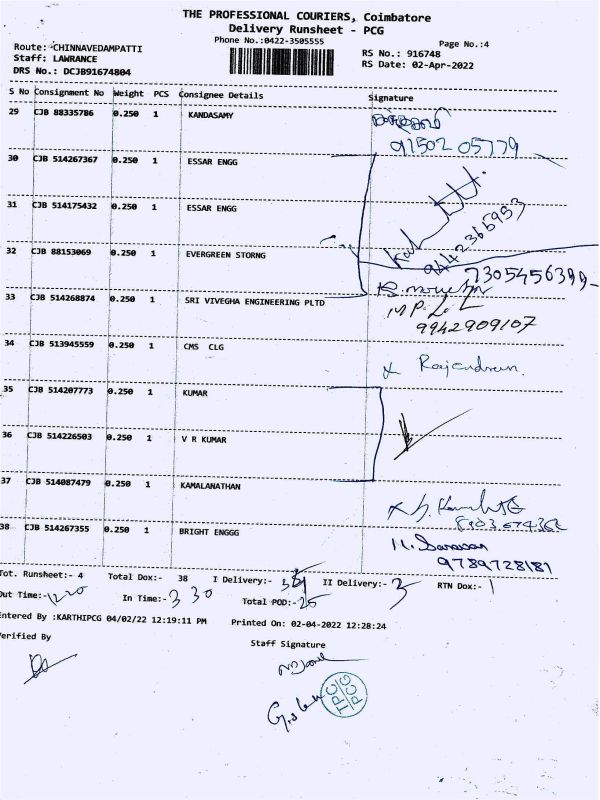 THE PROFESSIONAL COURIERS, Coimbatore
Delivery Runsheet - PCG
Phone No.:0422-3505555
Page No.:4
Route: CHINNAVEDAMPATTI
Staff: LAWRANCE
DRS No.: DCJB91674804
RS No.: 916748
RS Date: 02-Apr-2022
S No Consignment No Weight PCS Consignee Details Signature
29 CJB 88335786 0.250 1 KANDASAMY
91502 05779
30 CJB 514267367 0.250 1 ESSAR ENGG
31 CJB 514175432 0.250 1 ESSAR ENGG
9442365953
32 CJB 88153069 0.250 1 EVERGREEN STORNG
7305456399
33 CJB 514268874 0.250 1 SRI VIVEGHA ENGINEERING PLTD
9942909107
34 CJB 513945559 0.250 1 CMS CLG
x Rajendran.
35 CJB 514207773 0.250 1 KUMAR
36 CJB 514226503 0.250 1 V R KUMAR
37 CJB 514087479 0.250 1 KAMALANATHAN
38 CJB 514267355 0.250 1 BRIGHT ENGGG
9789728181
Tot. Runsheet:- 4 Total Dox:- 38 I Delivery:- II Delivery:- 3 RTN Dox:- 1
Out Time:- 12 20 In Time:- 3 30 Total POD:- 25
Entered By :KARTHIPCG 04/02/22 12:19:11 PM Printed On: 02-04-2022 12:28:24
Verified By
Staff Signature
TPC
PCG